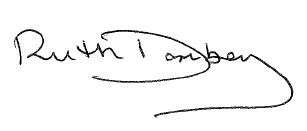 Ruth Dombey